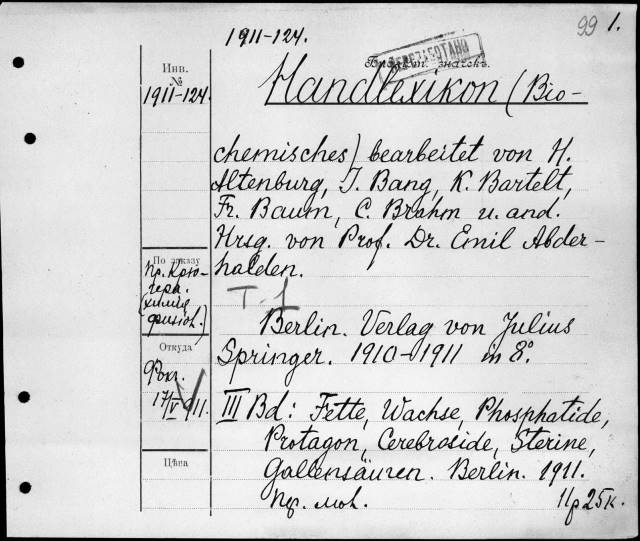 99 1.
1911-124.
ПЕРЕРАБОТАНО
Инв.
№
1911-124.
Handlexikon (Bio-
chemisches) bearbeitet von H.
Altenburg, I. Bang, K. Bartelt,
Fr. Baum, C. Brahm u. and.
Hrsg. von Prof. Dr. Emil Abder-
halden.
По заказу
пр. Крю-
гера.
(химія
физіол.)
T-1
Berlin. Verlag von Julius
Springer. 1910-1911 in 8°.
Откуда
Фохт.
17/V 911.
III Bd: Fette, Wachse, Phosphatide,
Protagon, Cerebroside, Sterine,
Gallensäuren. Berlin. 1911.
Цѣна
11р 25к.